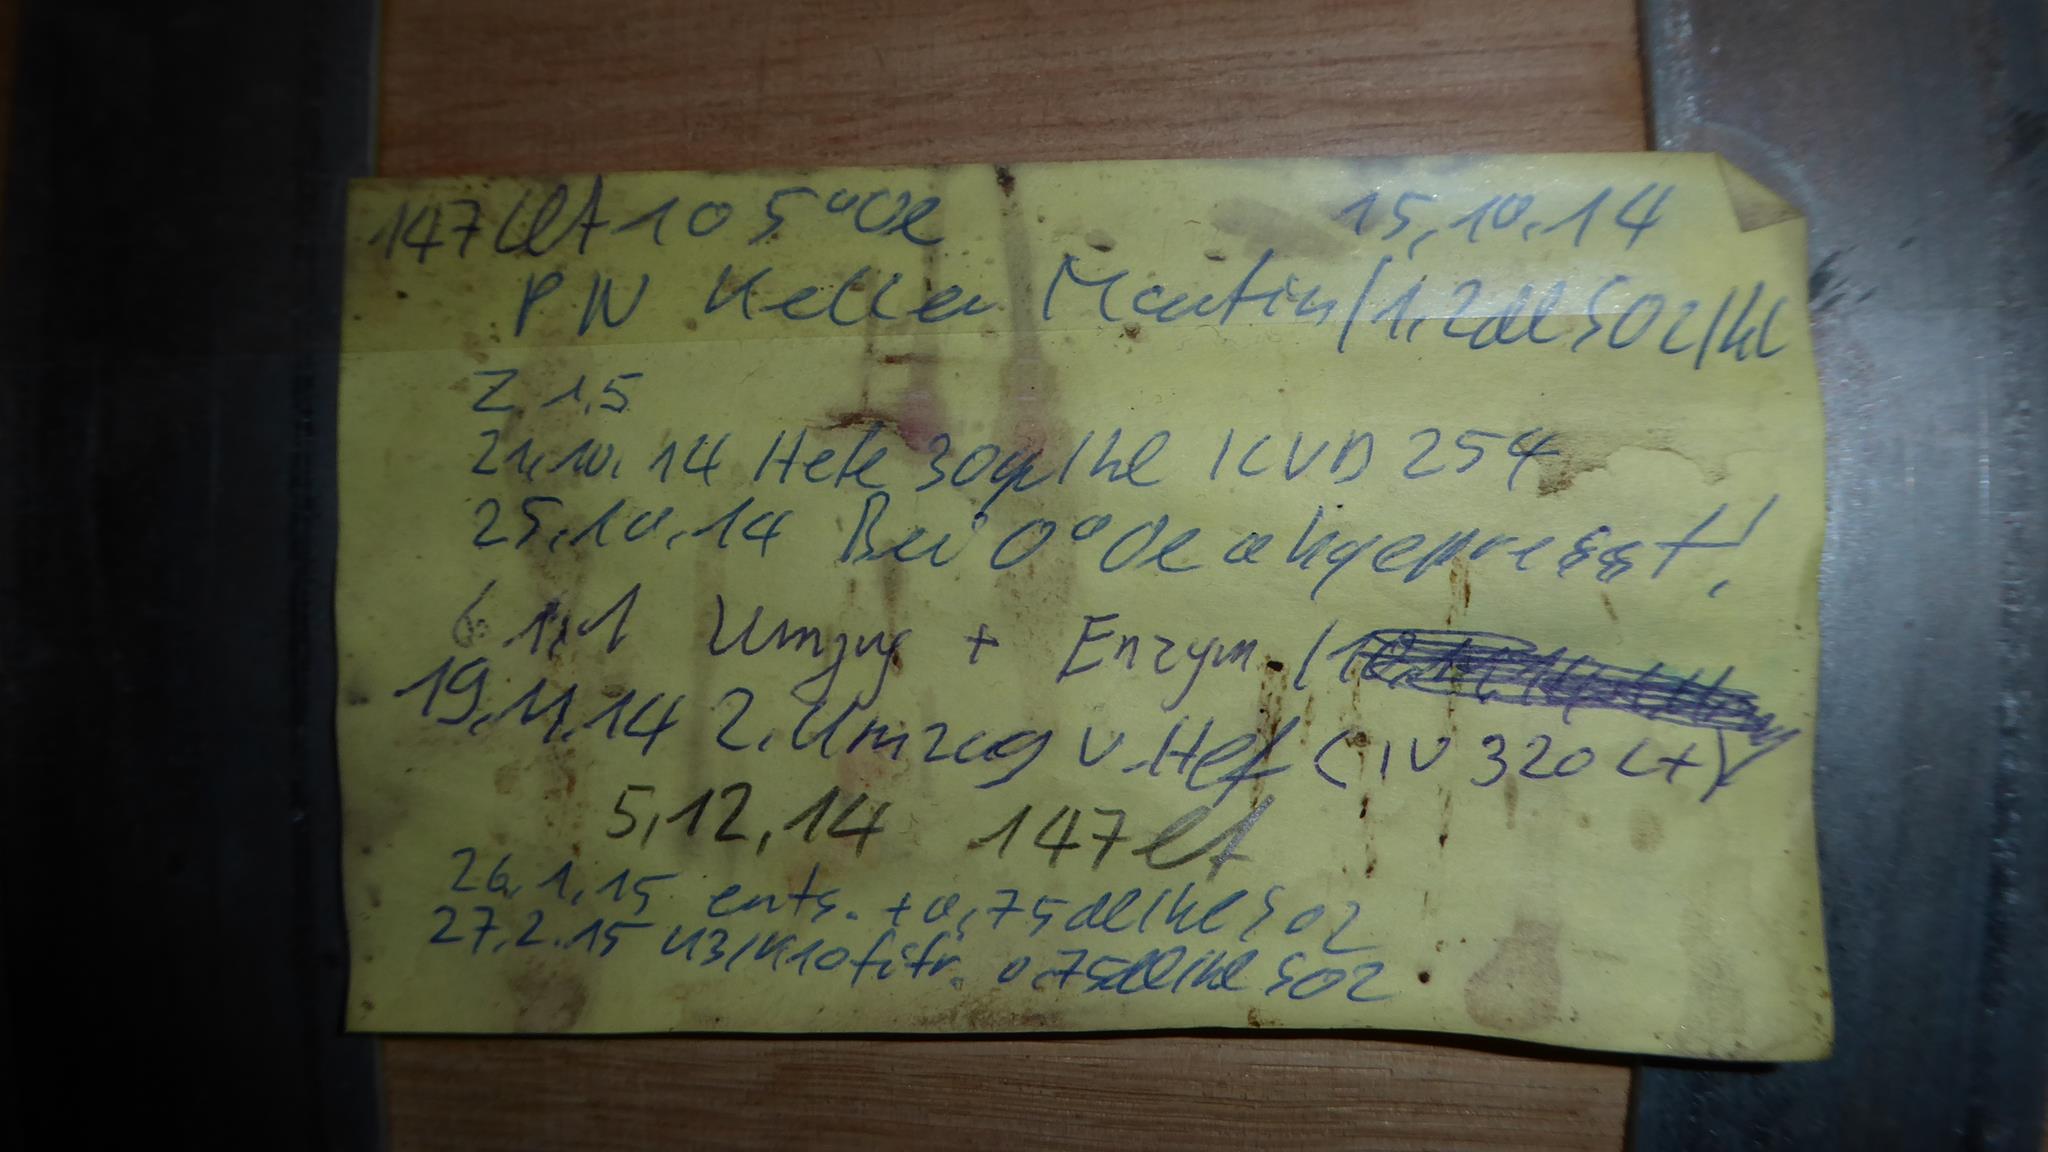 147 lt 105°Oe 15.10.14
PN Keller Martin / 1,2dl SO2/hl
Z 1,5
21.10.14 Hefe 30g/hl IVD 254
25.10.14 Bei 0°Oe abgepresst!
6.11 Umzug + Enzym /
19.11.14 2. Umzug v. Hef (IV 320 Lt)
5,12,14 147 lt
26.1.15 ents. + 0,75dl/hl SO2
27.2.15 filtr. 0.75dl/hl SO2